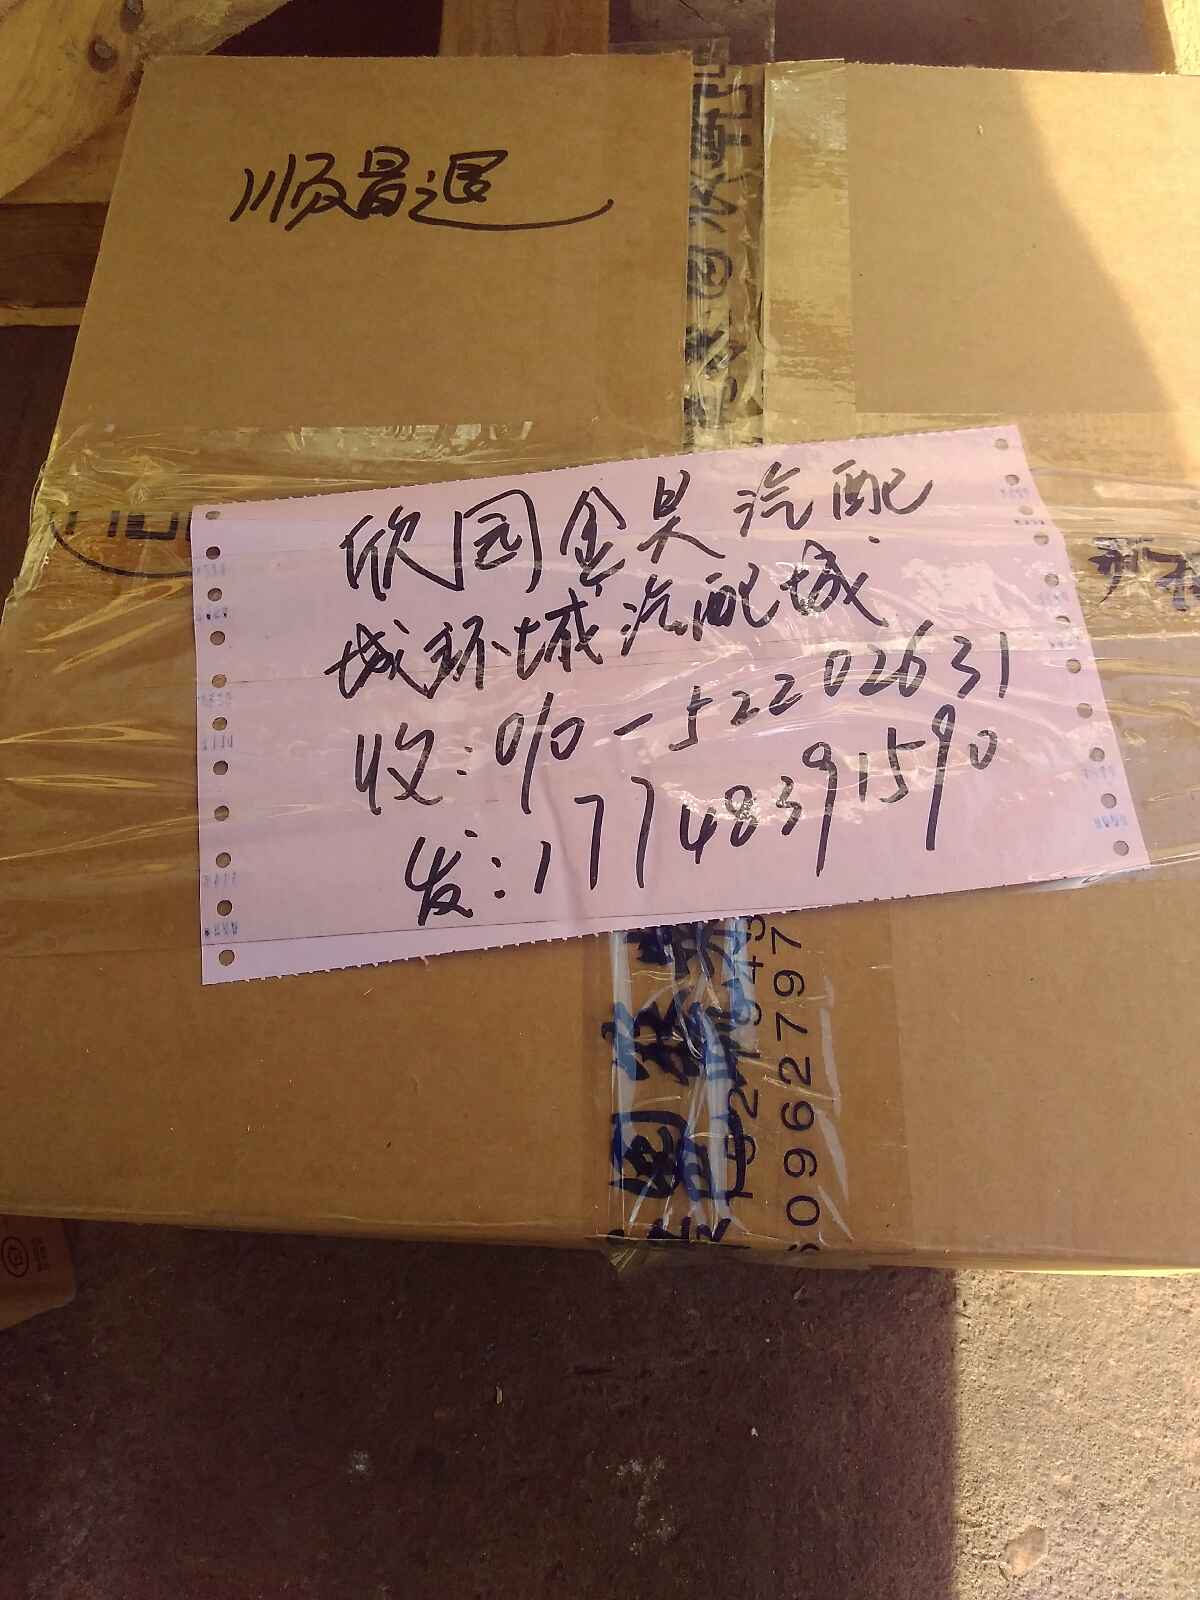 顺昌退
欣园金昊汽配
城环城汽配城
收:010-52202631
发:17748391590
60962797